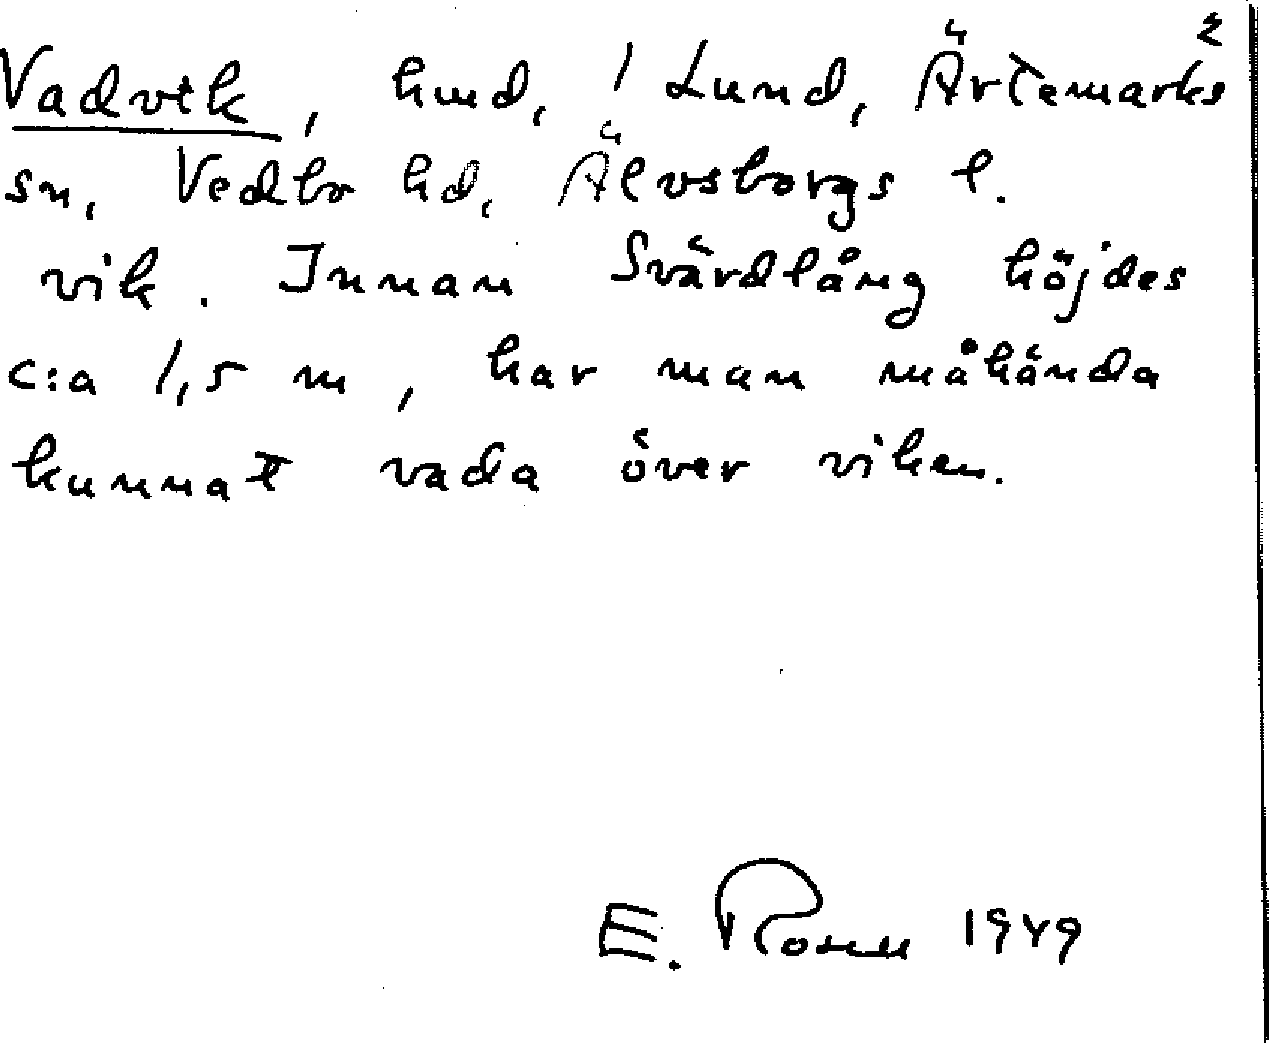 2
Vadvik, hmd, / Lund, Ärtemarks
sn, Vedbo hd, Älvsborgs l.
vik. Innan Svärdlång höjdes
c:a 1,5 m, har man måhända
kunnat vada över viken.
E. 1949